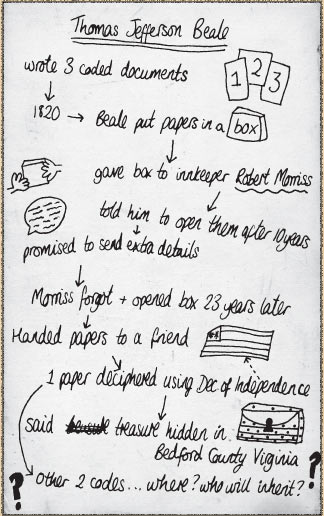 Thomas Jefferson Beale
wrote 3 coded documents
1 2 3
1820 → Beale put papers in a box
gave box to innkeeper Robert Morriss
told him to open them after 10 years
promised to send extra details
Morriss forgot + opened box 23 years later
Handed papers to a friend
1 paper deciphered using Dec of Independence
said treasure hidden in
Bedford County Virginia
? Other 2 codes... where? who will inherit? ?